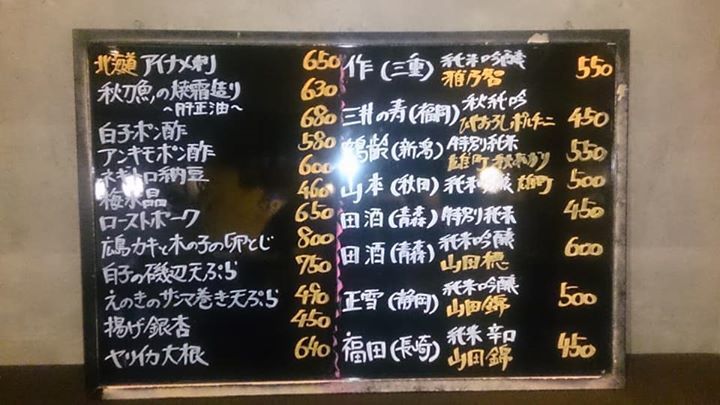 北海道 アイナメ刺 650
秋刀魚の焼霜造り 630
～肝正油～
白子ポン酢 680
アンキモポン酢 580
ネギトロ納豆 600
梅水晶 460
ローストポーク 650
広島カキと木の子の卵とじ 800
白子の磯辺天ぷら 750
えのきのサンマ巻き天ぷら 490
揚げ銀杏 450
ヤリイカ大根 640
作(三重) 純米吟醸 雅乃智 550
三井の寿(福岡) 秋純吟 ひやおろしポルチーニ 450
鶴齢(新潟) 特別純米 雄町 550
山本(秋田) 純米吟醸 雄町 500
田酒(青森) 特別純米 450
田酒(青森) 純米吟醸 山田穂 600
正雪(静岡) 純米吟醸 山田錦 500
福田(長崎) 純米辛口 山田錦 450